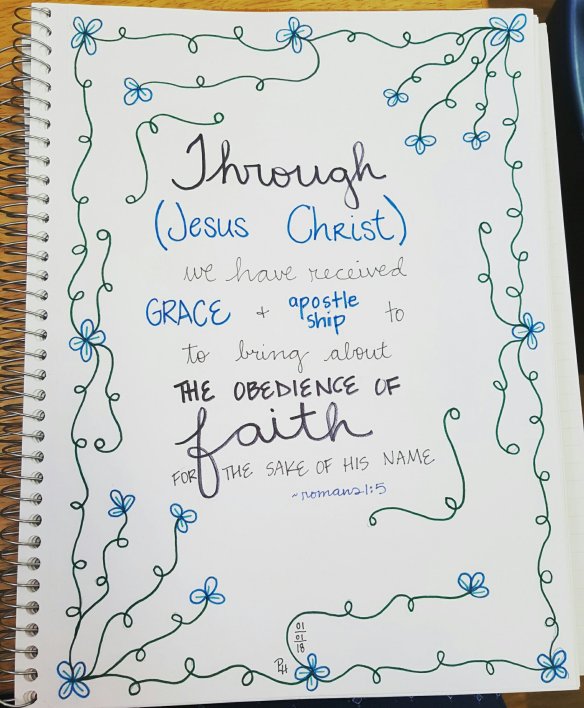 Through
(Jesus Christ)
we have received
GRACE + apostle ship to
to bring about
THE OBEDIENCE OF
faith
FOR THE SAKE OF HIS NAME
~romans 1:5
01
01
18